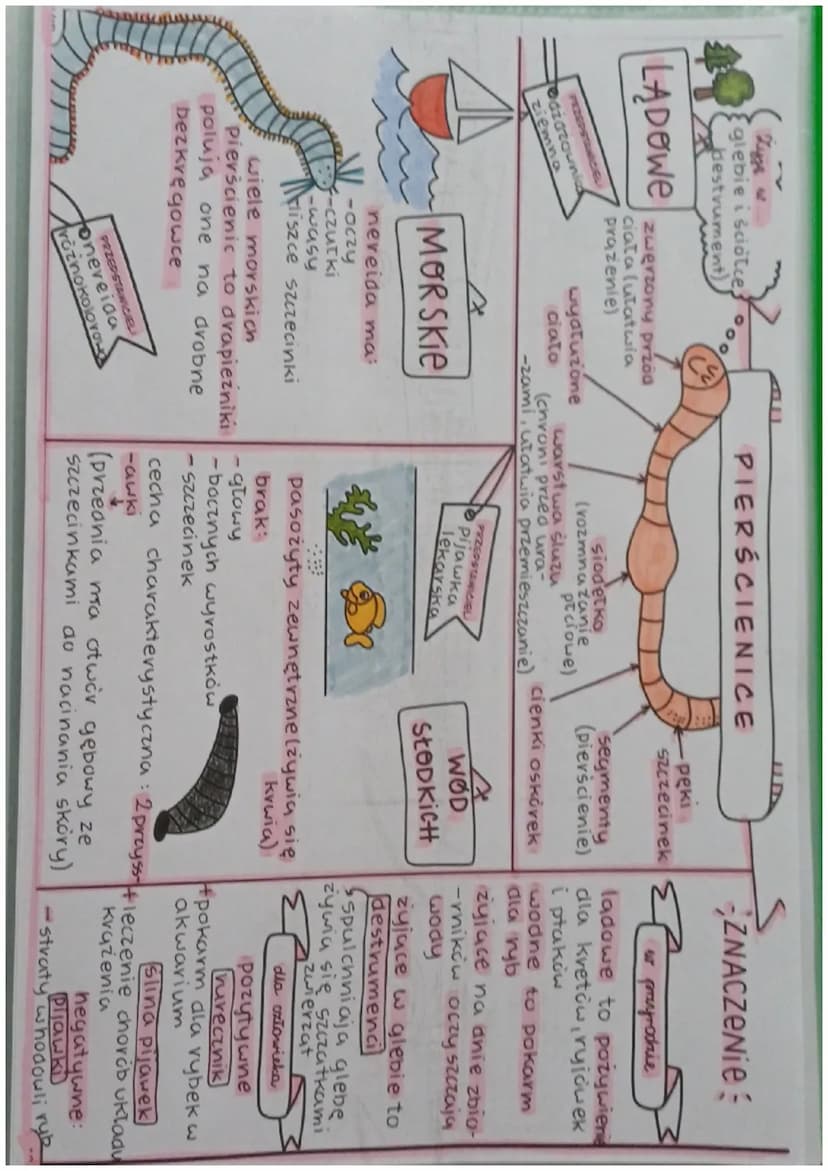 PIERŚCIENICE
żyją w...
glebie i ściółce
(destrument)
LĄDOWE
PRZEDSTAWICIEL
dżdżownica
ziemna
zwężony przód
ciała (ułatwia
prążenie)
wydłużone
ciało
warstwa śluzu
(chroni przed ura-
-zami, ułatwia przemieszczanie)
siodełko
(rozmnażanie
płciowe)
cienki oskórek
segmenty
(pierścienie)
pęki
szczecinek
MORSKIE
nereida ma:
-oczy
-czułki
-wąsy
liszce szczecinki
wiele morskich
pierścienic to drapieżniki
polują one na drobne
bezkręgowce
PRZEDSTAWICIEL
nereida
różnokolorowa
WÓD
SŁODKICH
PRZEDSTAWICIEL
pijawka
lekarska
pasożyty zewnętrzne (żywią się
krwią)
brak:
- głowy
- bocznych wyrostków
- szczecinek
cecha charakterystyczna: 2 przyss-
-awki
(przednia ma otwór gębowy ze
szczecinkami do nacinania skóry)
ZNACZENIE:
w przyrodzie
lądowe to pożywienie
dla kretów, ryjówek
i ptaków
wodne to pokarm
dla ryb
żyjące na dnie zbio-
-rników oczyszczają
wody
żyjące w glebie to
destrumenci
spulchniają glebę
żywią się szczątkami
zwierząt
dla człowieka
pozytywne
nurecznik
+ pokarm dla rybek w
akwarium
ślina pijawek
+ leczenie chorób układu
krążenia
negatywne:
pijawki
- straty w hodowli ryb